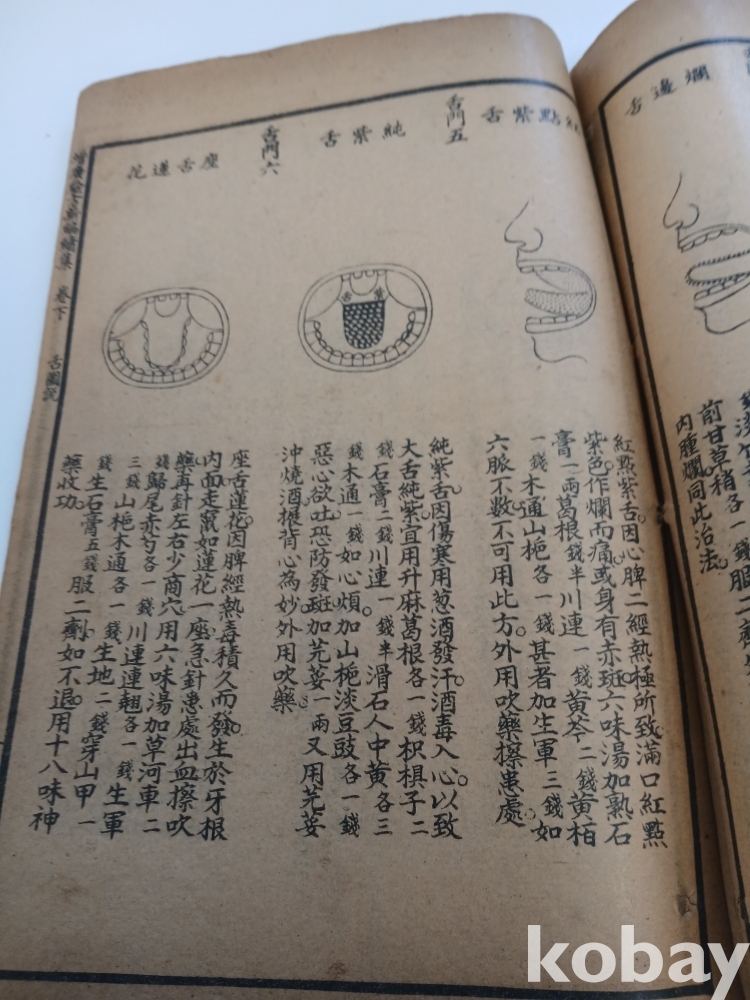 爛邊舌
前甘草稍各一錢服二劑
內腫爛同此治法
紅點紫舌
紅點紫舌因心脾二經熱極所致滿口紅點
紫色作爛而痛或身有赤斑六味湯加熟石
膏一兩葛根錢半川連一錢黃芩二錢黃栢
一錢木通山梔各一錢甚者加生軍三錢如
六脈不數不可用此方外用吹藥擦患處
舌門五
純紫舌
舌紫
純紫舌因傷寒用葱酒發汗酒毒入心以致
大舌純紫宜用升麻葛根各一錢枳椇子二
錢石膏二錢川連一錢半滑石人中黃各三
錢木通一錢如心煩加山梔淡豆豉各一錢
惡心欲吐恐防發斑加芫荽一兩又用芫荽
沖燒酒搌背心為妙外用吹藥
舌門六
座舌蓮花
座舌蓮花因脾經熱毒積久而發生於牙根
內面走氣如蓮花一座急針患處出血擦吹
藥再針左右少商穴用六味湯加草河車二
錢歸尾赤芍各一錢川連連翹各一錢生軍
三錢山梔木通各一錢生地二錢穿山甲一
錢生石膏五錢服二劑如不退用十八味神
藥收功
卷下
舌圖說
kobay